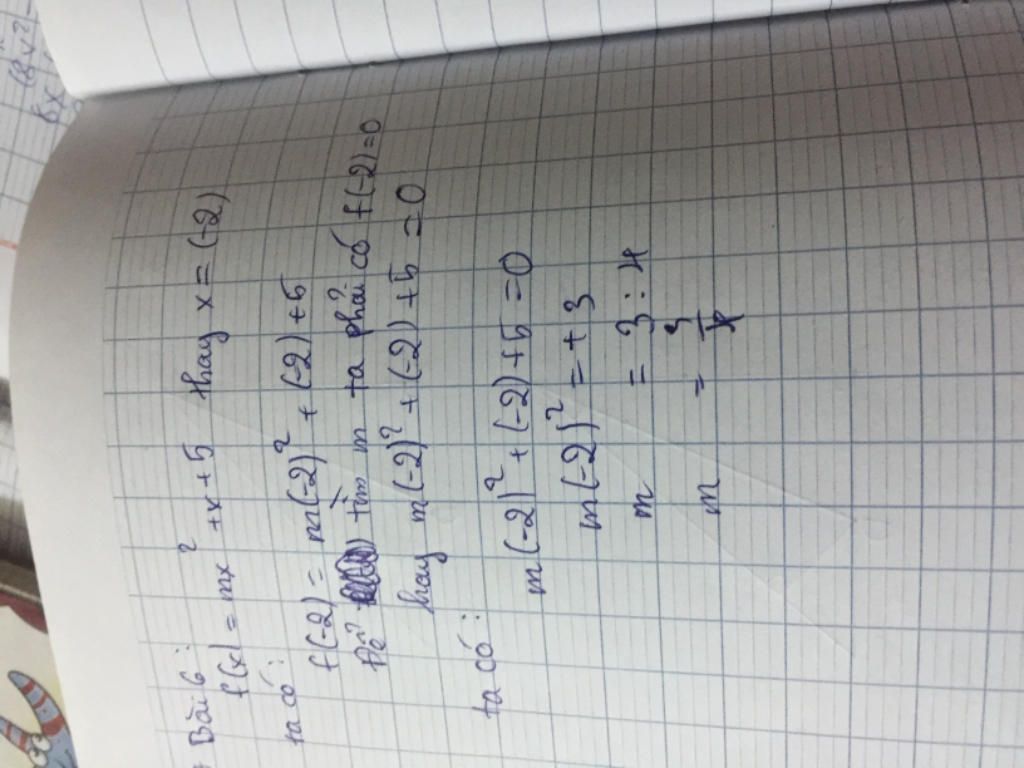 Bài 6 :
f(x) = mx² + x + 5 thay x = (-2)
ta có :
f(-2) = m(-2)² + (-2) + 5
Để tìm m ta phải có f(-2) = 0
hay m(-2)² + (-2) + 5 = 0
ta có :
m(-2)² + (-2) + 5 = 0
m(-2)² = + 3
m = 3 : 4
m = 3/4
8x²